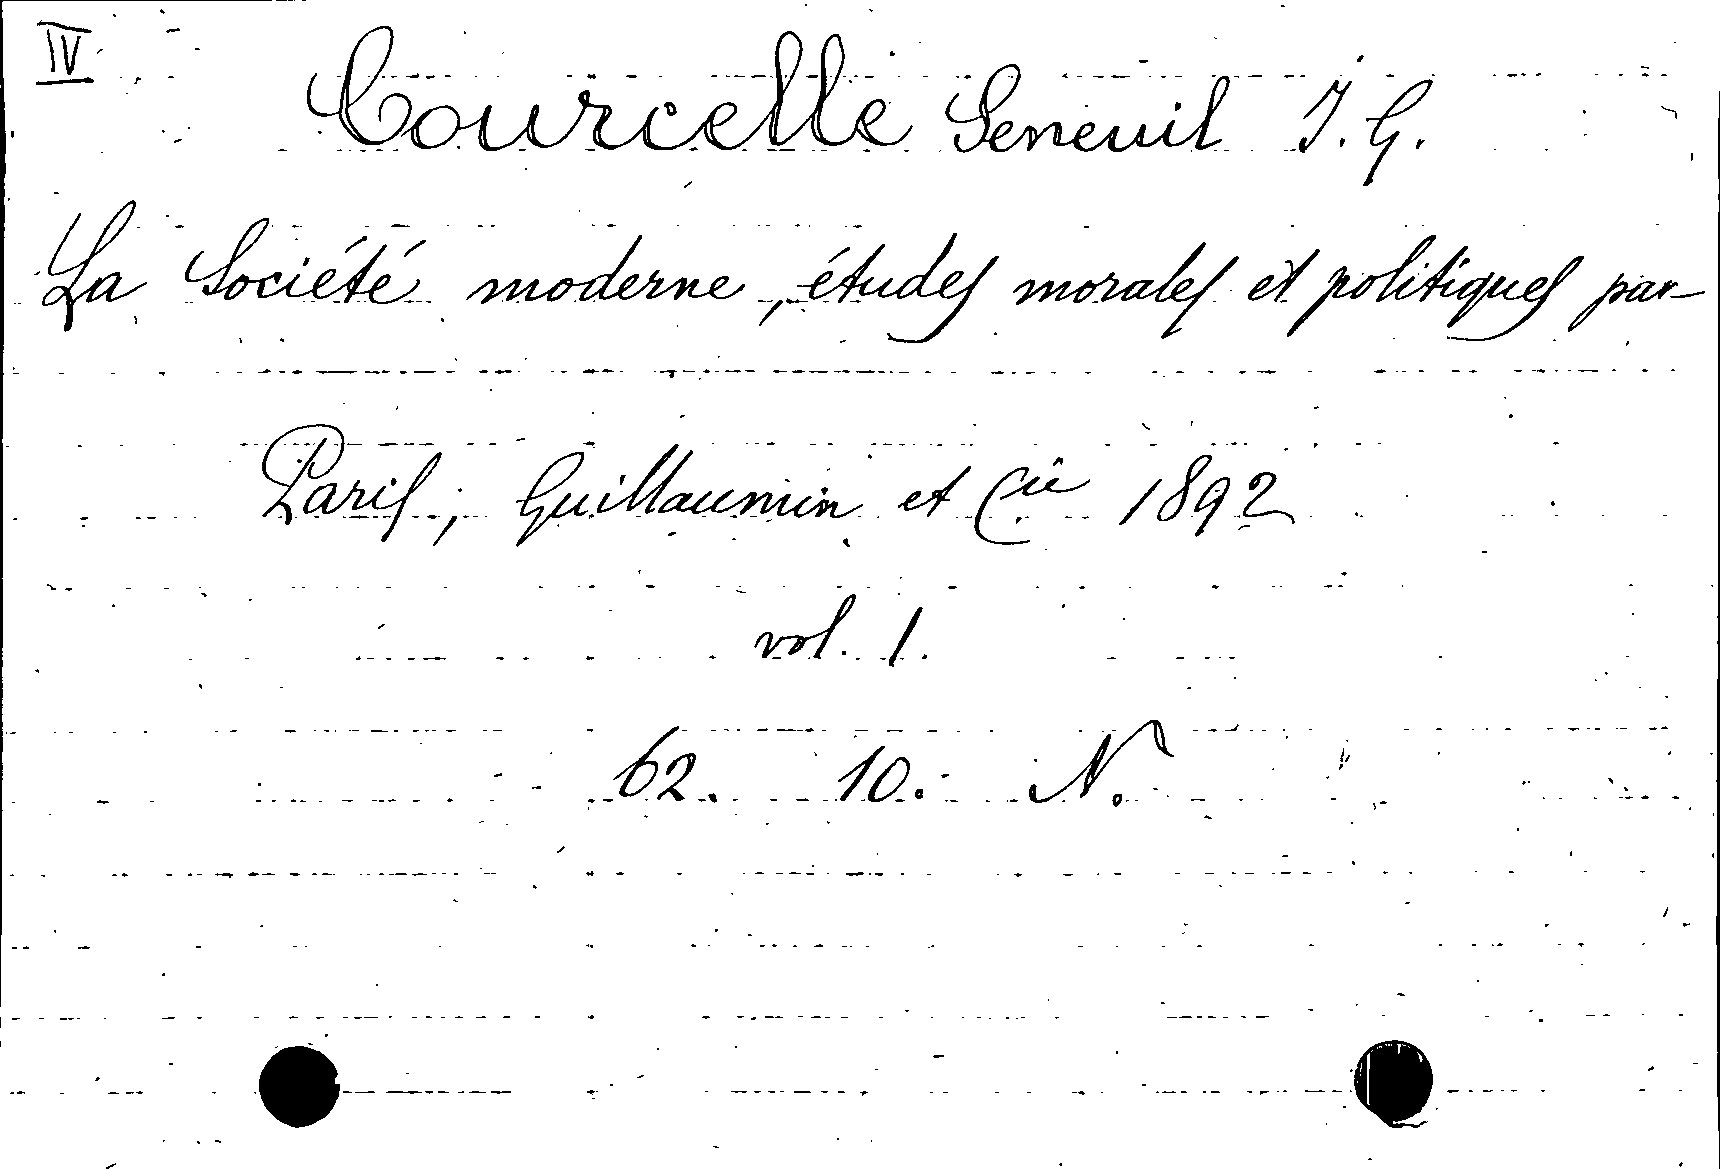 IV
Courcelle Seneuil J. G.
La Société moderne, études morales et politiques par
Paris, Guillaumin et Cie 1892
vol. 1.
62. 10. N.